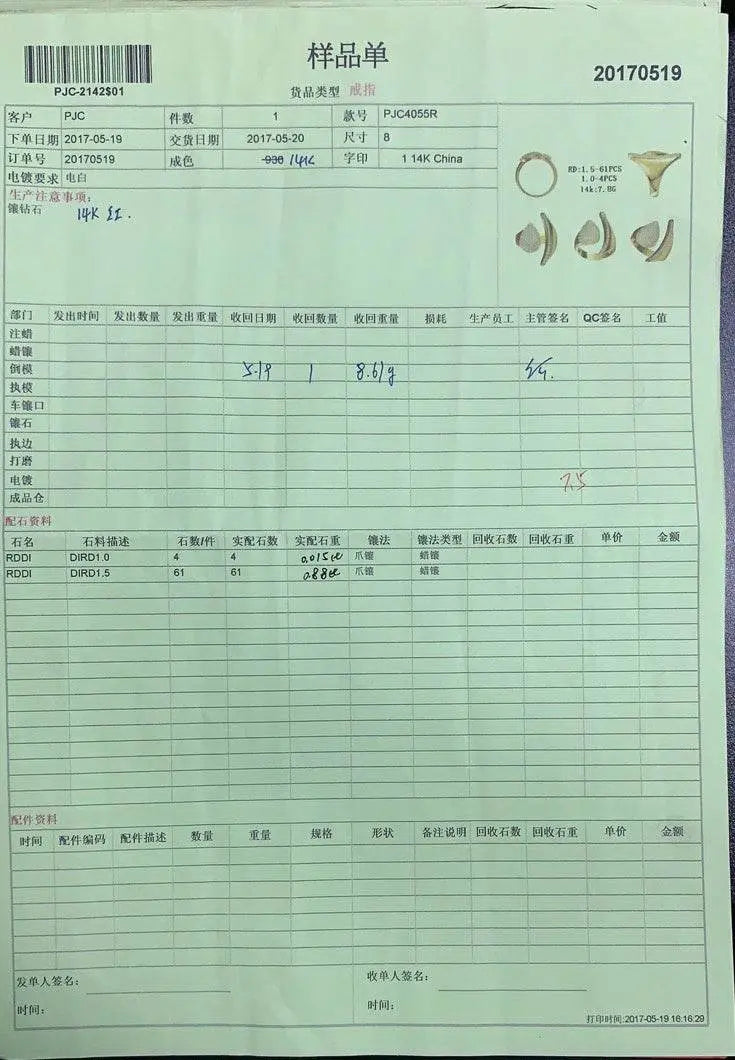 样品单
20170519
PJC-2142$01
货品类型 戒指
客户 PJC 件数 1 款号 PJC4055R
下单日期 2017-05-19 交货日期 2017-05-20 尺寸 8
订单号 20170519 成色 930 14K 字印 1 14K China
电镀要求 电白
生产注意事项:
镶钻石 14K 红.
RD:1.5-61PCS
1.0-4PCS
14k:7.8G
部门 发出时间 发出数量 发出重量 收回日期 收回数量 收回重量 损耗 生产员工 主管签名 QC签名 工值
注蜡
蜡镶
倒模 5.19 1 8.61g
执模
车镶口
镶石
执边
打磨
电镀 7.5
成品仓
配石资料
石名 石料描述 石数/件 实配石数 实配石重 镶法 镶法类型 回收石数 回收石重 单价 金额
RDDI DIRD1.0 4 4 0.015ct 爪镶 蜡镶
RDDI DIRD1.5 61 61 0.88ct 爪镶 蜡镶
配件资料
时间 配件编码 配件描述 数量 重量 规格 形状 备注说明 回收石数 回收石重 单价 金额
发单人签名: 收单人签名:
时间: 时间:
打印时间:2017-05-19 16:16:29